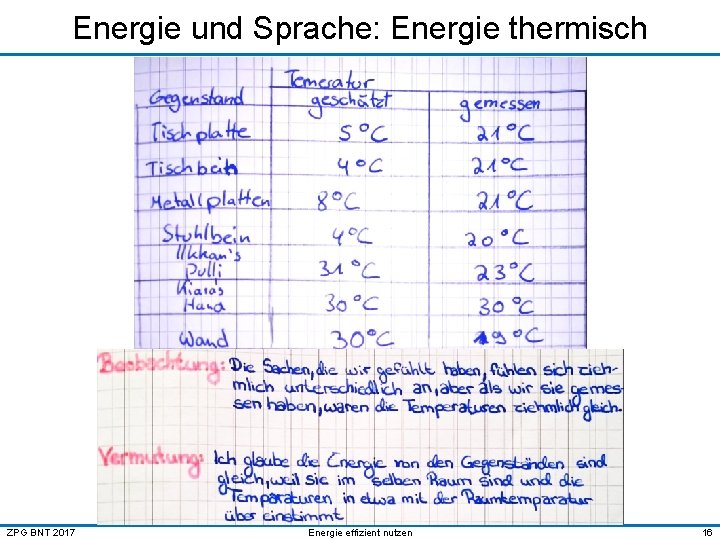 Energie und Sprache: Energie thermisch
Temeratur
Gegenstand geschätzt gemessen
Tischplatte 5°C 21°C
Tischbein 4°C 21°C
Metallplatten 8°C 21°C
Stuhlbein 4°C 20°C
Ilkkan's
Pulli 31°C 23°C
Kiaras
Hand 30°C 30°C
Wand 30°C 19°C
Beobachtung: Die Sachen, die wir gefühlt haben, fühlen sich zieh-
mlich unterschiedlich an, aber als wir sie gemes-
sen haben, waren die Temperaturen ziehmlich gleich.
Vermutung: Ich glaube die Energie von den Gegenständen sind
gleich, weil sie im selben Raum sind und die
Temperaturen in etwa mit der Raumtemperatur
über einstimmt
ZPG BNT 2017 Energie effizient nutzen 16